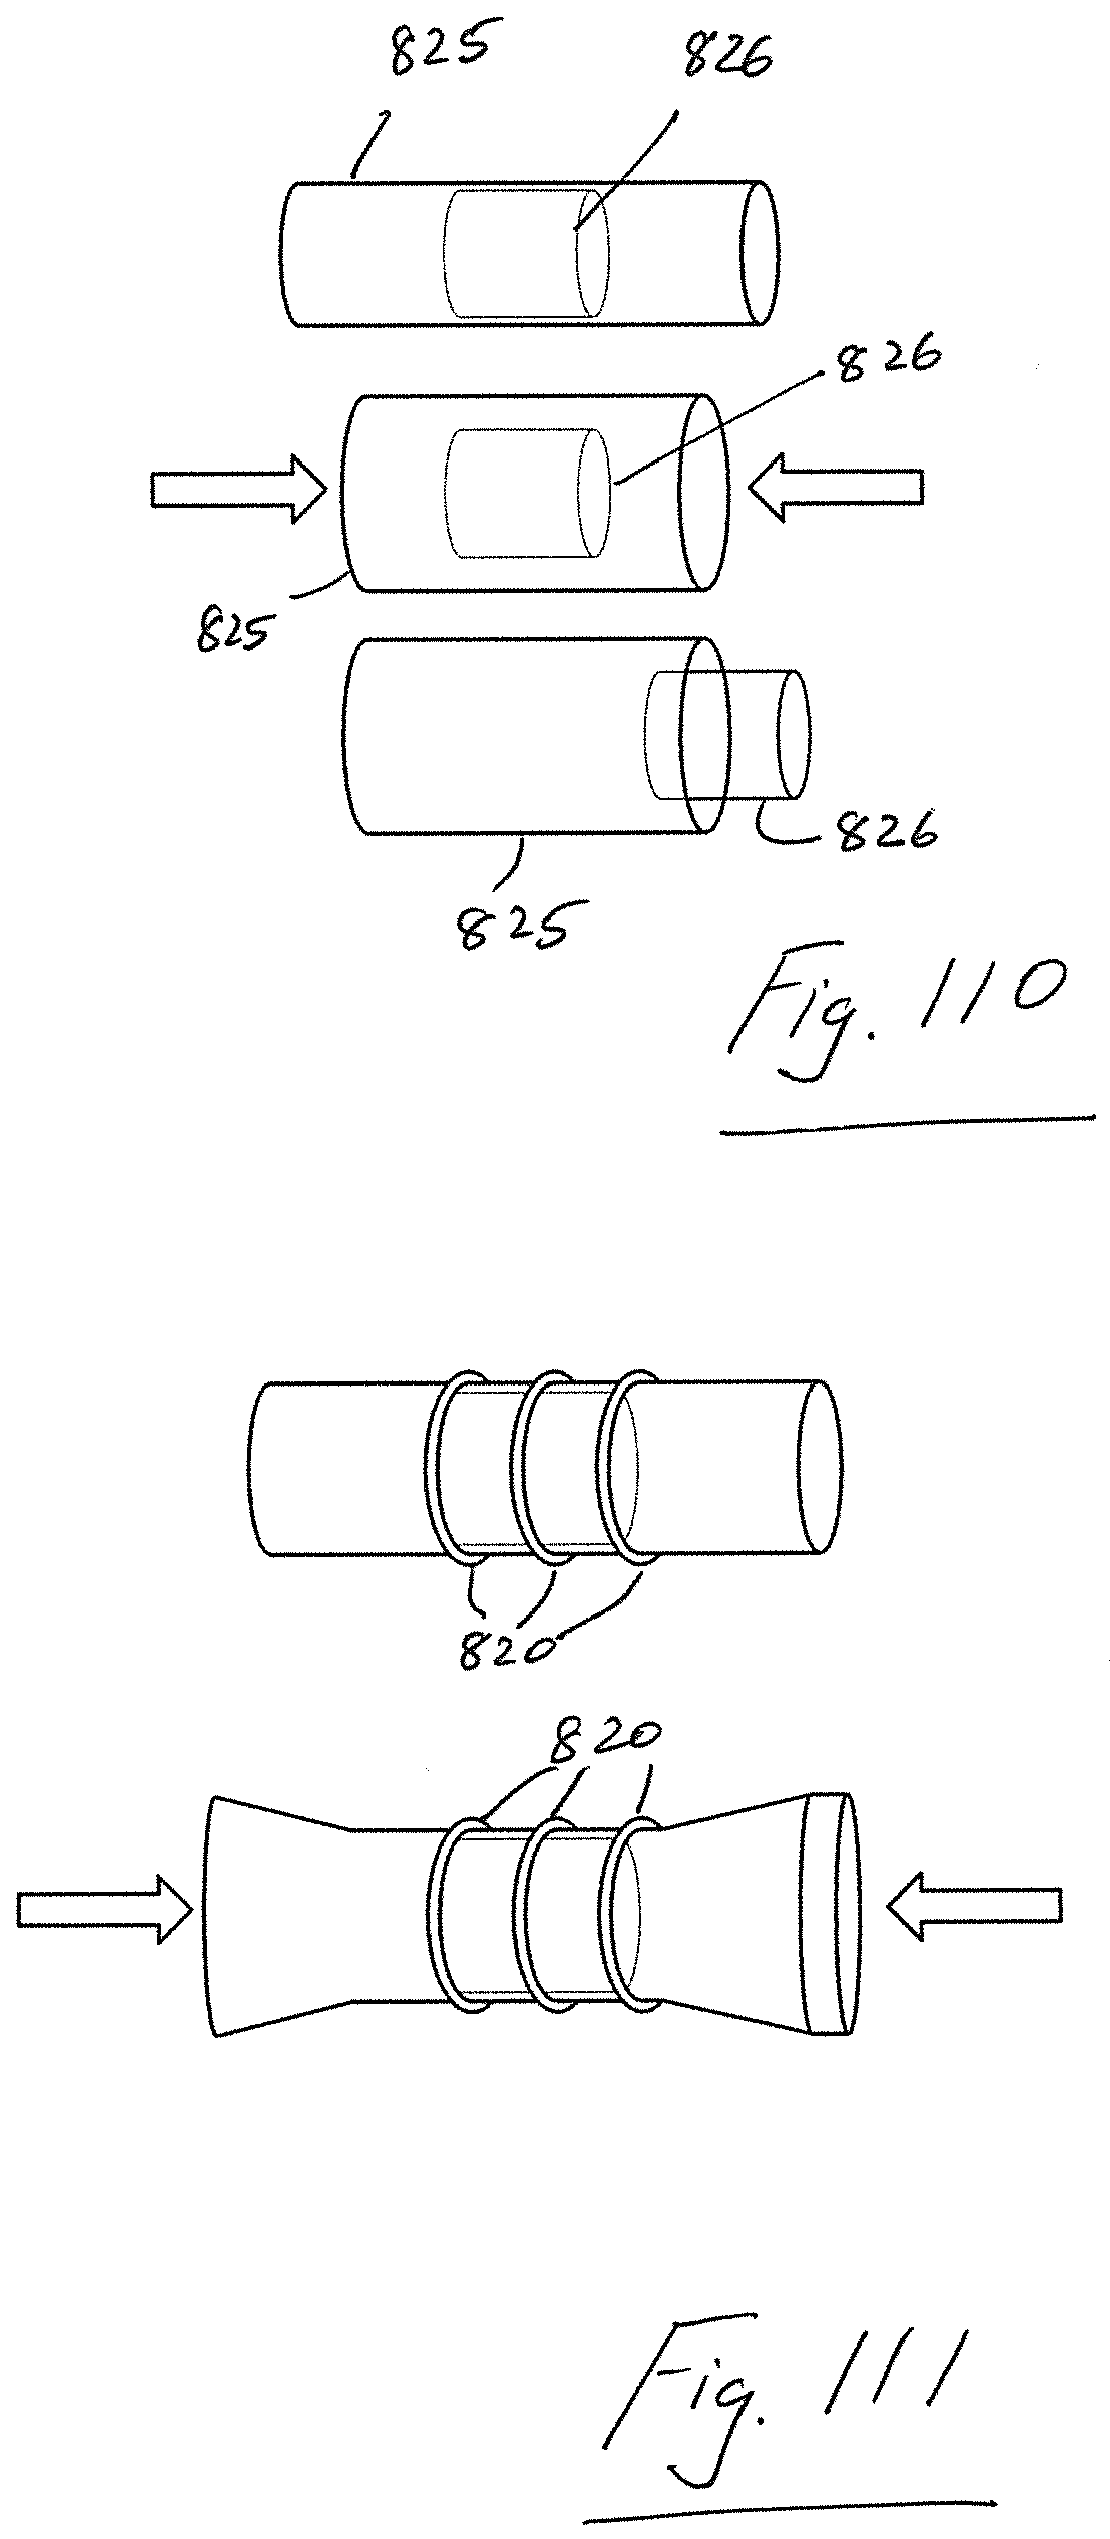 825 826
826
825
826
825
Fig. 110
820
820
Fig. 111